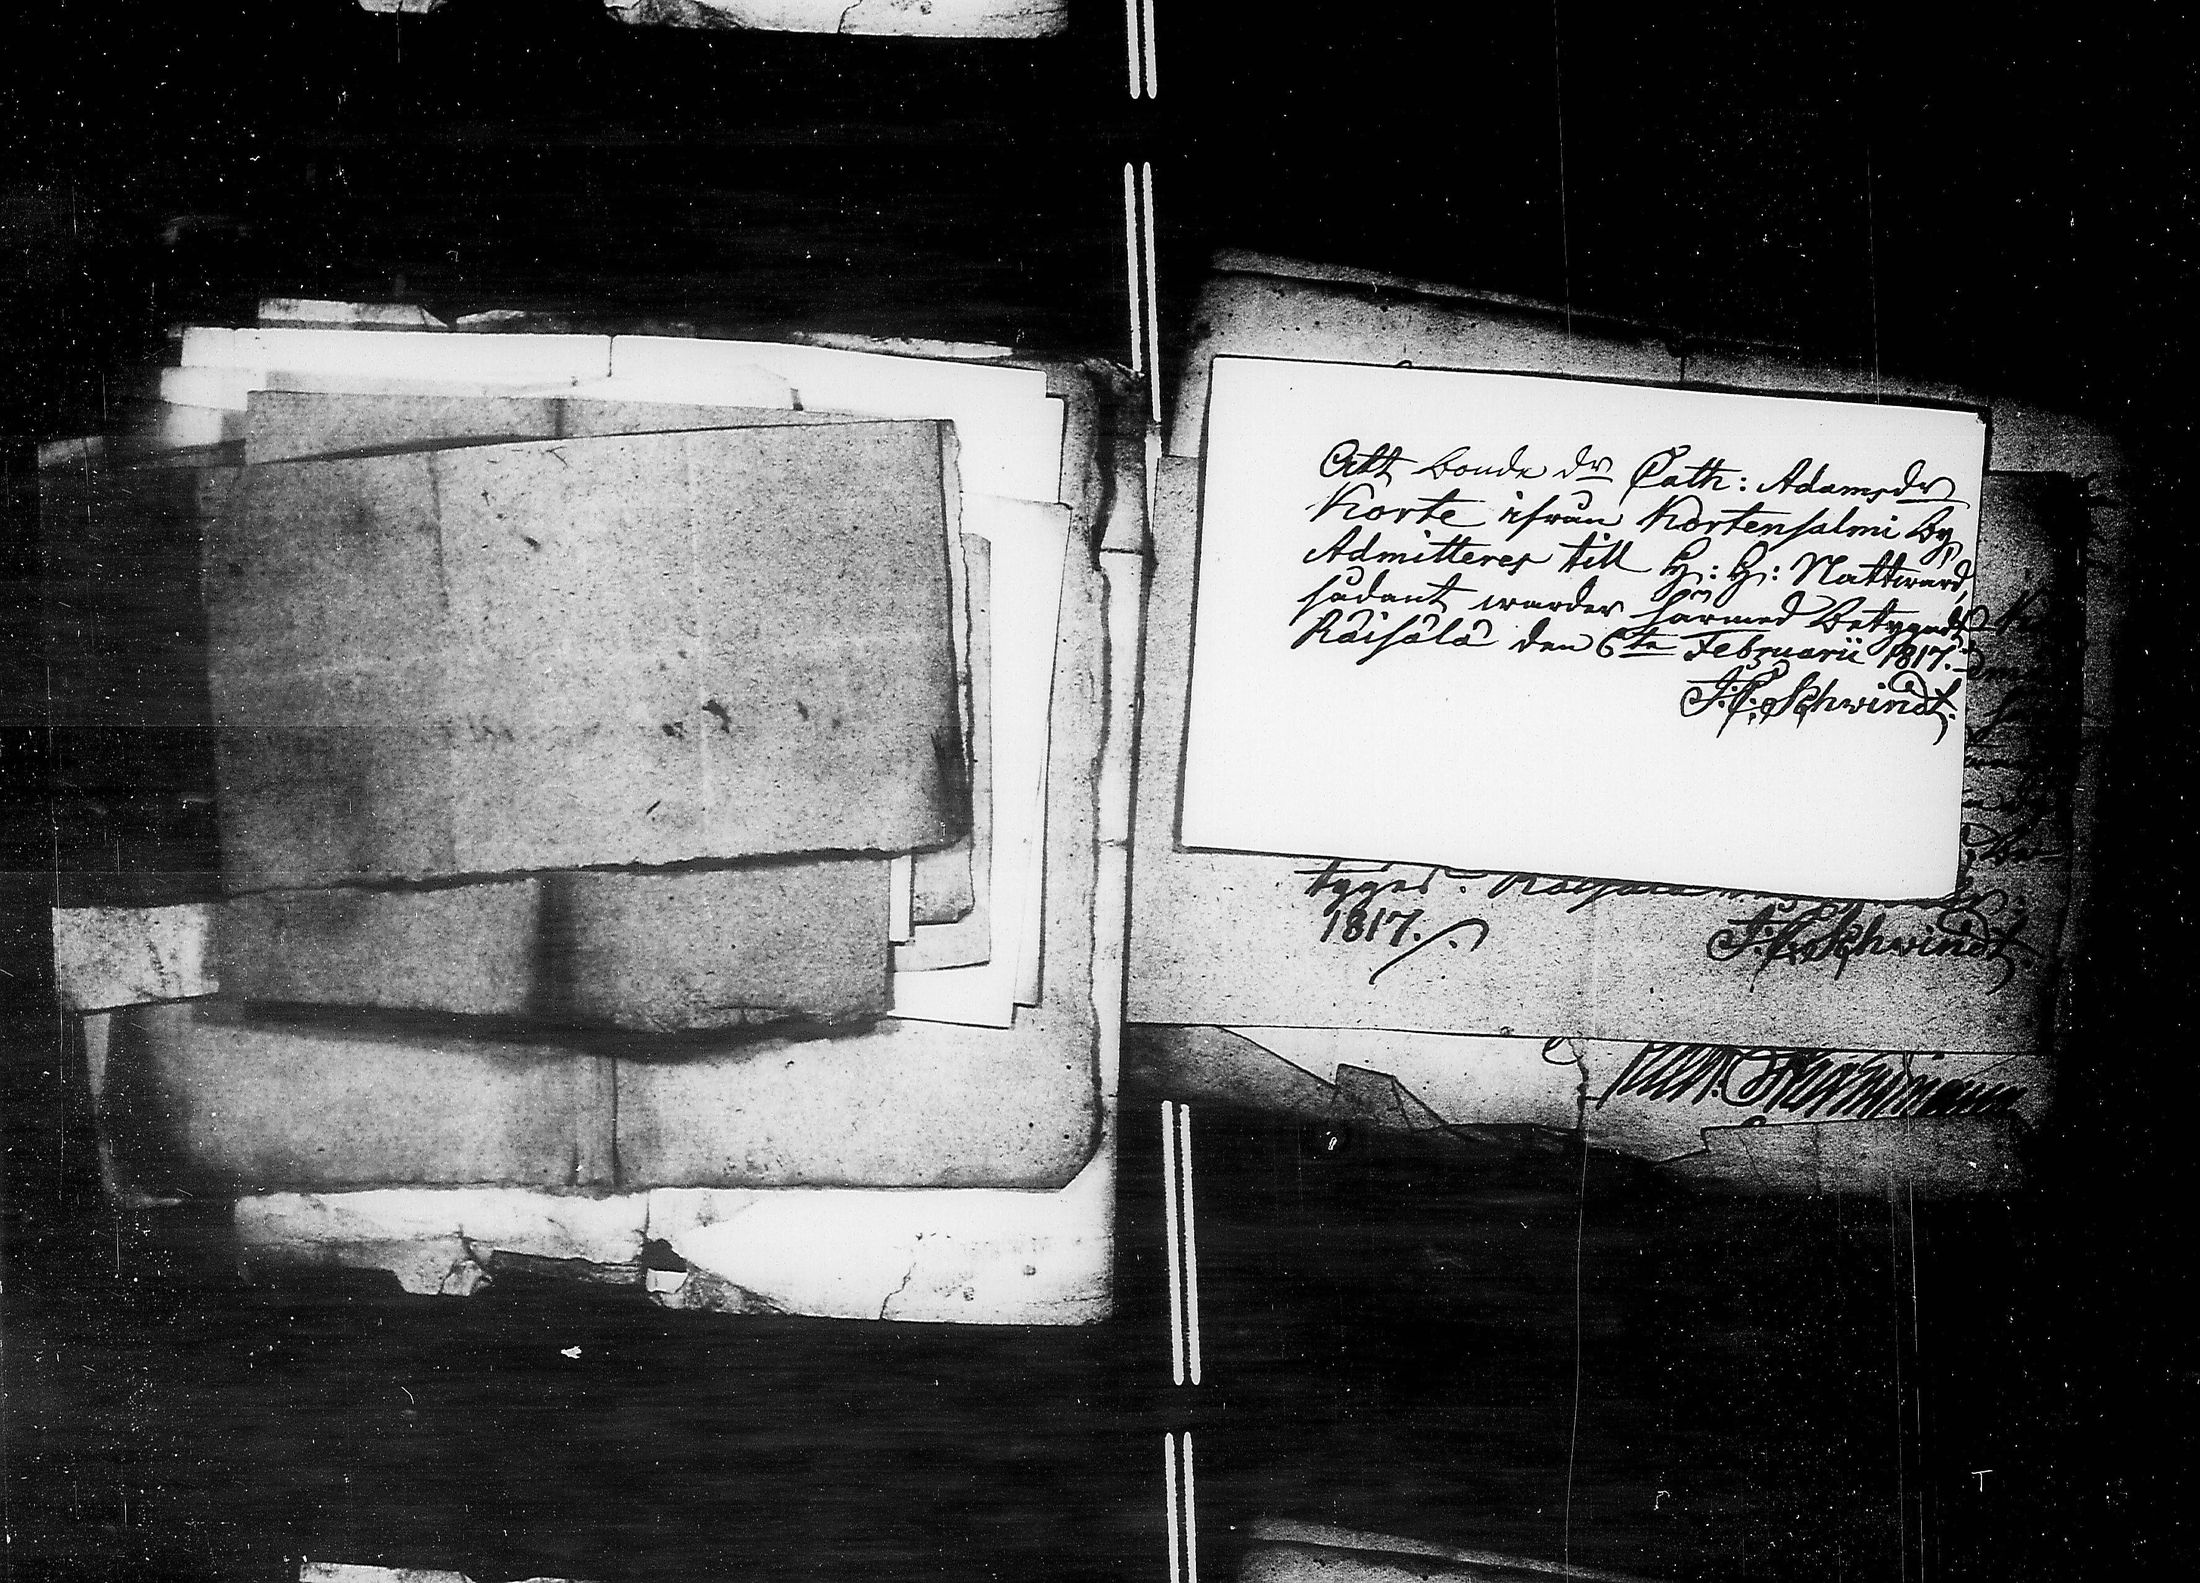 Att bonde dr Cath: Adamsdr
Korte ifrån Kortensalmi by,
Admitteres till H: H: Nattward,
sådant warder härmed betygadt
Räisälä den 6te Februarii 1817.
J. C. Schwindt.
tyges. Räisälä
1817.
J. C. Schwindt.